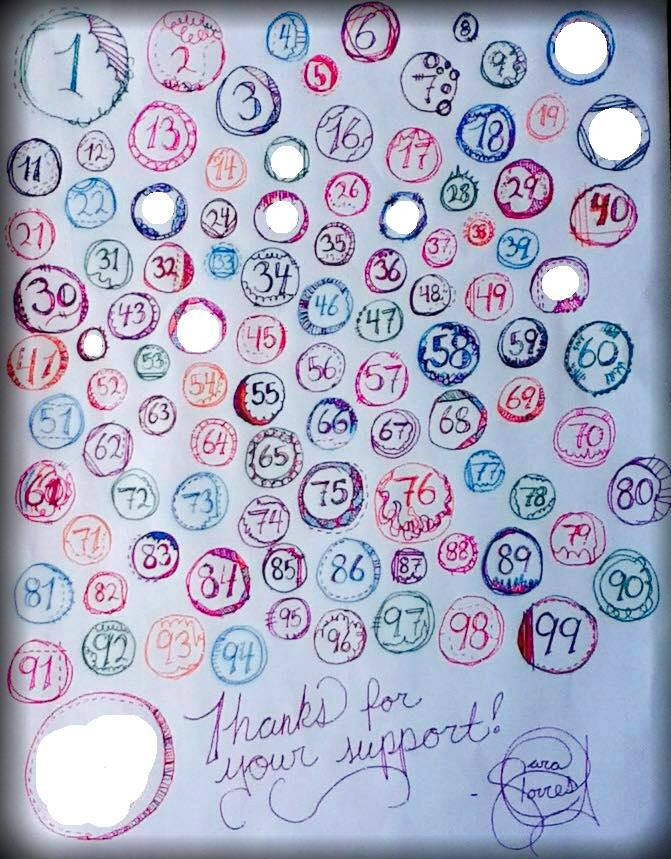 1 2 3 4 5 6 7 8 9
11 12 13 14 16 17 18 19
21 22 24 26 28 29
30 31 32 33 34 35 36 37 38 39 40
41 43 45 46 47 48 49
51 52 53 54 55 56 57 58 59 60
61 62 63 64 65 66 67 68 69 70
71 72 73 74 75 76 77 78 79 80
81 82 83 84 85 86 87 88 89 90
91 92 93 94 95 96 97 98 99
Thanks for
your support!
- Sara
Torres